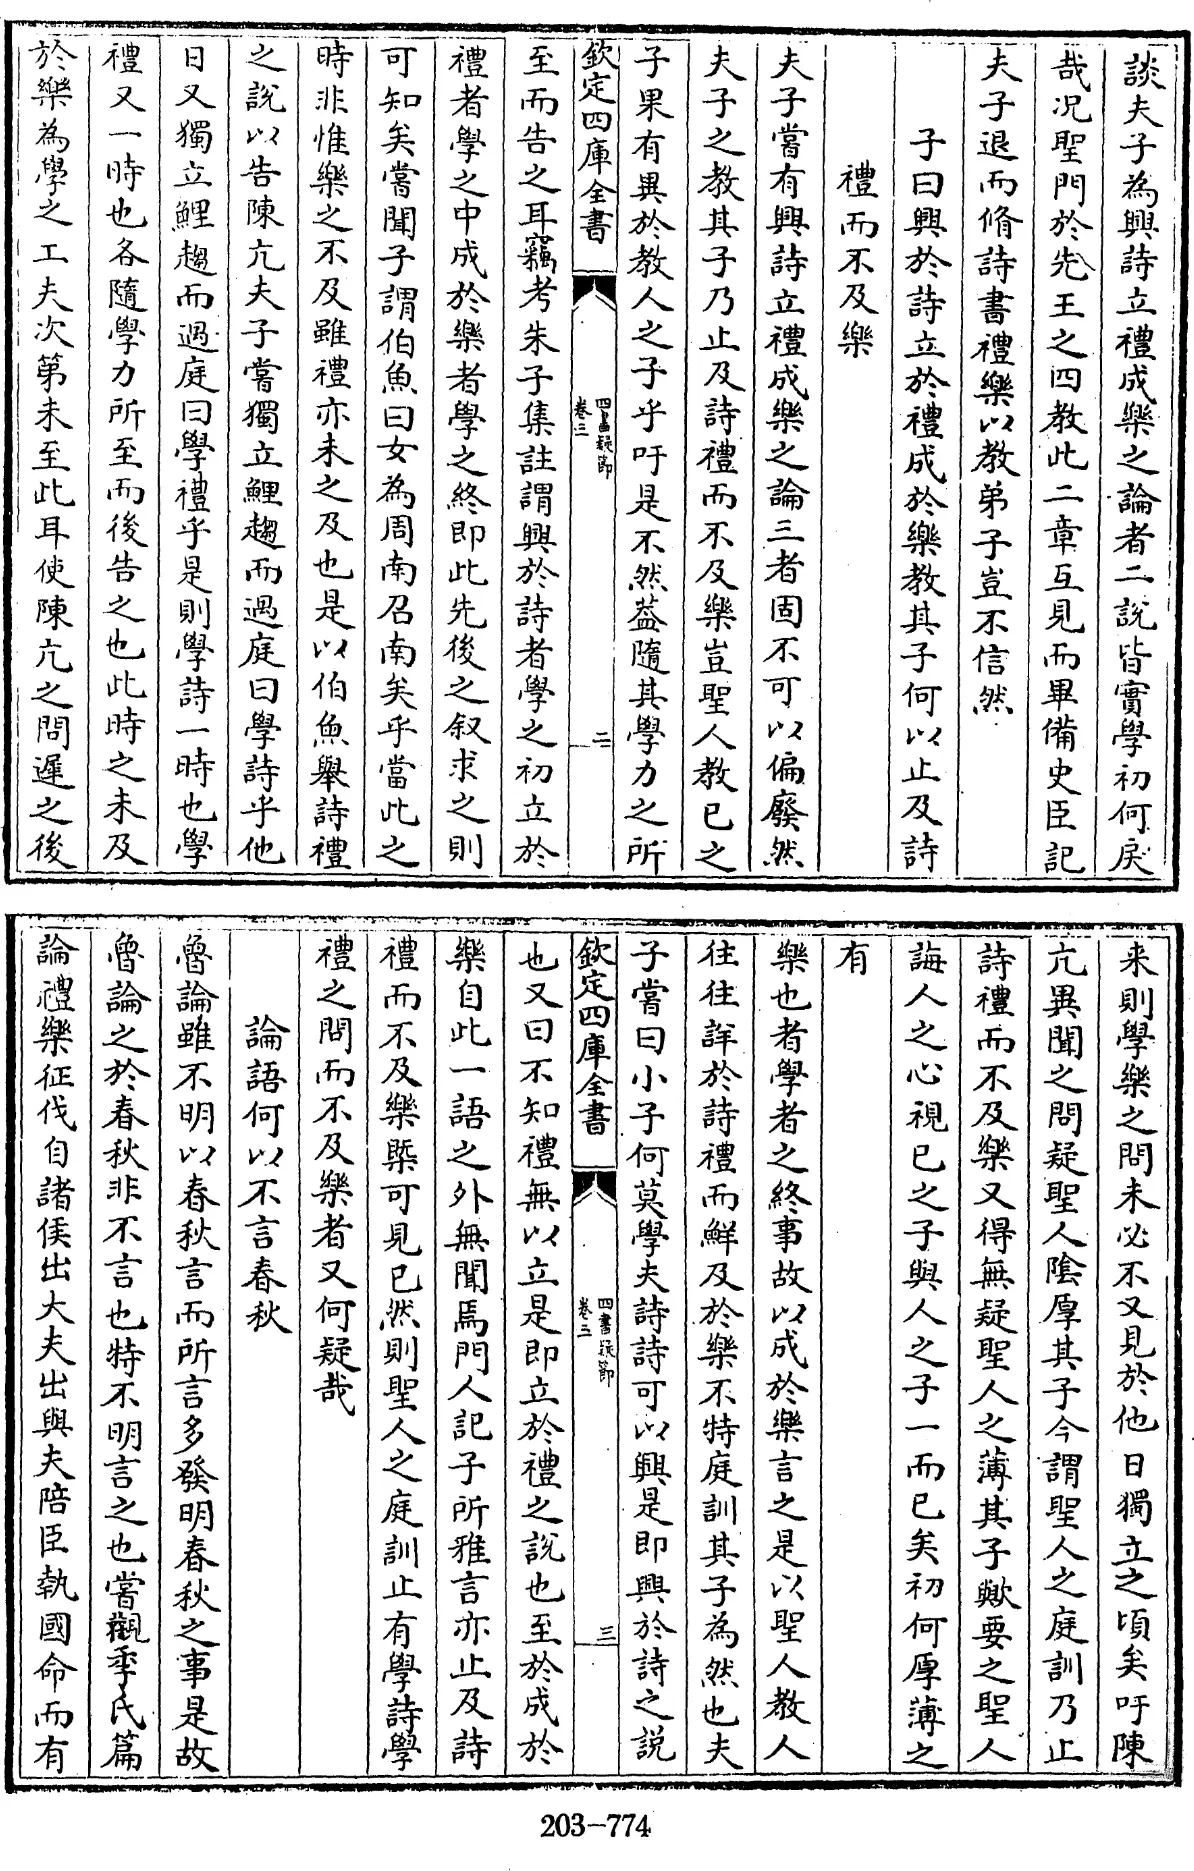 談夫子為興詩立禮成樂之論者二說皆實學初何戾
哉况聖門於先王之四教此二章互見而畢備史臣記
夫子退而脩詩書禮樂以教弟子豈不信然
子曰興於詩立於禮成於樂教其子何以止及詩
禮而不及樂
夫子嘗有興詩立禮成樂之論三者固不可以偏廢然
夫子之教其子乃止及詩禮而不及樂豈聖人教已之
子果有異於教人之子乎吁是不然葢隨其學力之所
欽定四庫全書
四書疑節
卷三
二
至而告之耳竊考朱子集註謂興於詩者學之初立於
禮者學之中成於樂者學之終即此先後之叙求之則
可知矣嘗聞子謂伯魚曰女為周南召南矣乎當此之
時非惟樂之不及雖禮亦未之及也是以伯魚舉詩禮
之說以告陳亢夫子嘗獨立鯉趨而過庭曰學詩乎他
日又獨立鯉趨而過庭曰學禮乎是則學詩一時也學
禮又一時也各隨學力所至而後告之也此時之未及
於樂為學之工夫次第未至此耳使陳亢之問遲之後
来則學樂之問未必不又見於他日獨立之頃矣吁陳
亢異聞之問疑聖人隂厚其子今謂聖人之庭訓乃止
詩禮而不及樂又得無疑聖人之薄其子歟要之聖人
誨人之心視已之子與人之子一而已矣初何厚薄之
有
樂也者學者之終事故以成於樂言之是以聖人教人
往往詳於詩禮而鮮及於樂不特庭訓其子為然也夫
子嘗曰小子何莫學夫詩詩可以興是即興於詩之説
欽定四庫全書
四書疑節
卷三
三
也又曰不知禮無以立是即立於禮之說也至於成於
樂自此一語之外無聞焉門人記子所雅言亦止及詩
禮而不及樂槩可見已然則聖人之庭訓止有學詩學
禮之問而不及樂者又何疑哉
論語何以不言春秋
魯論雖不明以春秋言而所言多發明春秋之事是故
魯論之於春秋非不言也特不明言之也嘗觀季氏篇
論禮樂征伐自諸侯出大夫出與夫陪臣執國命而有
203-774